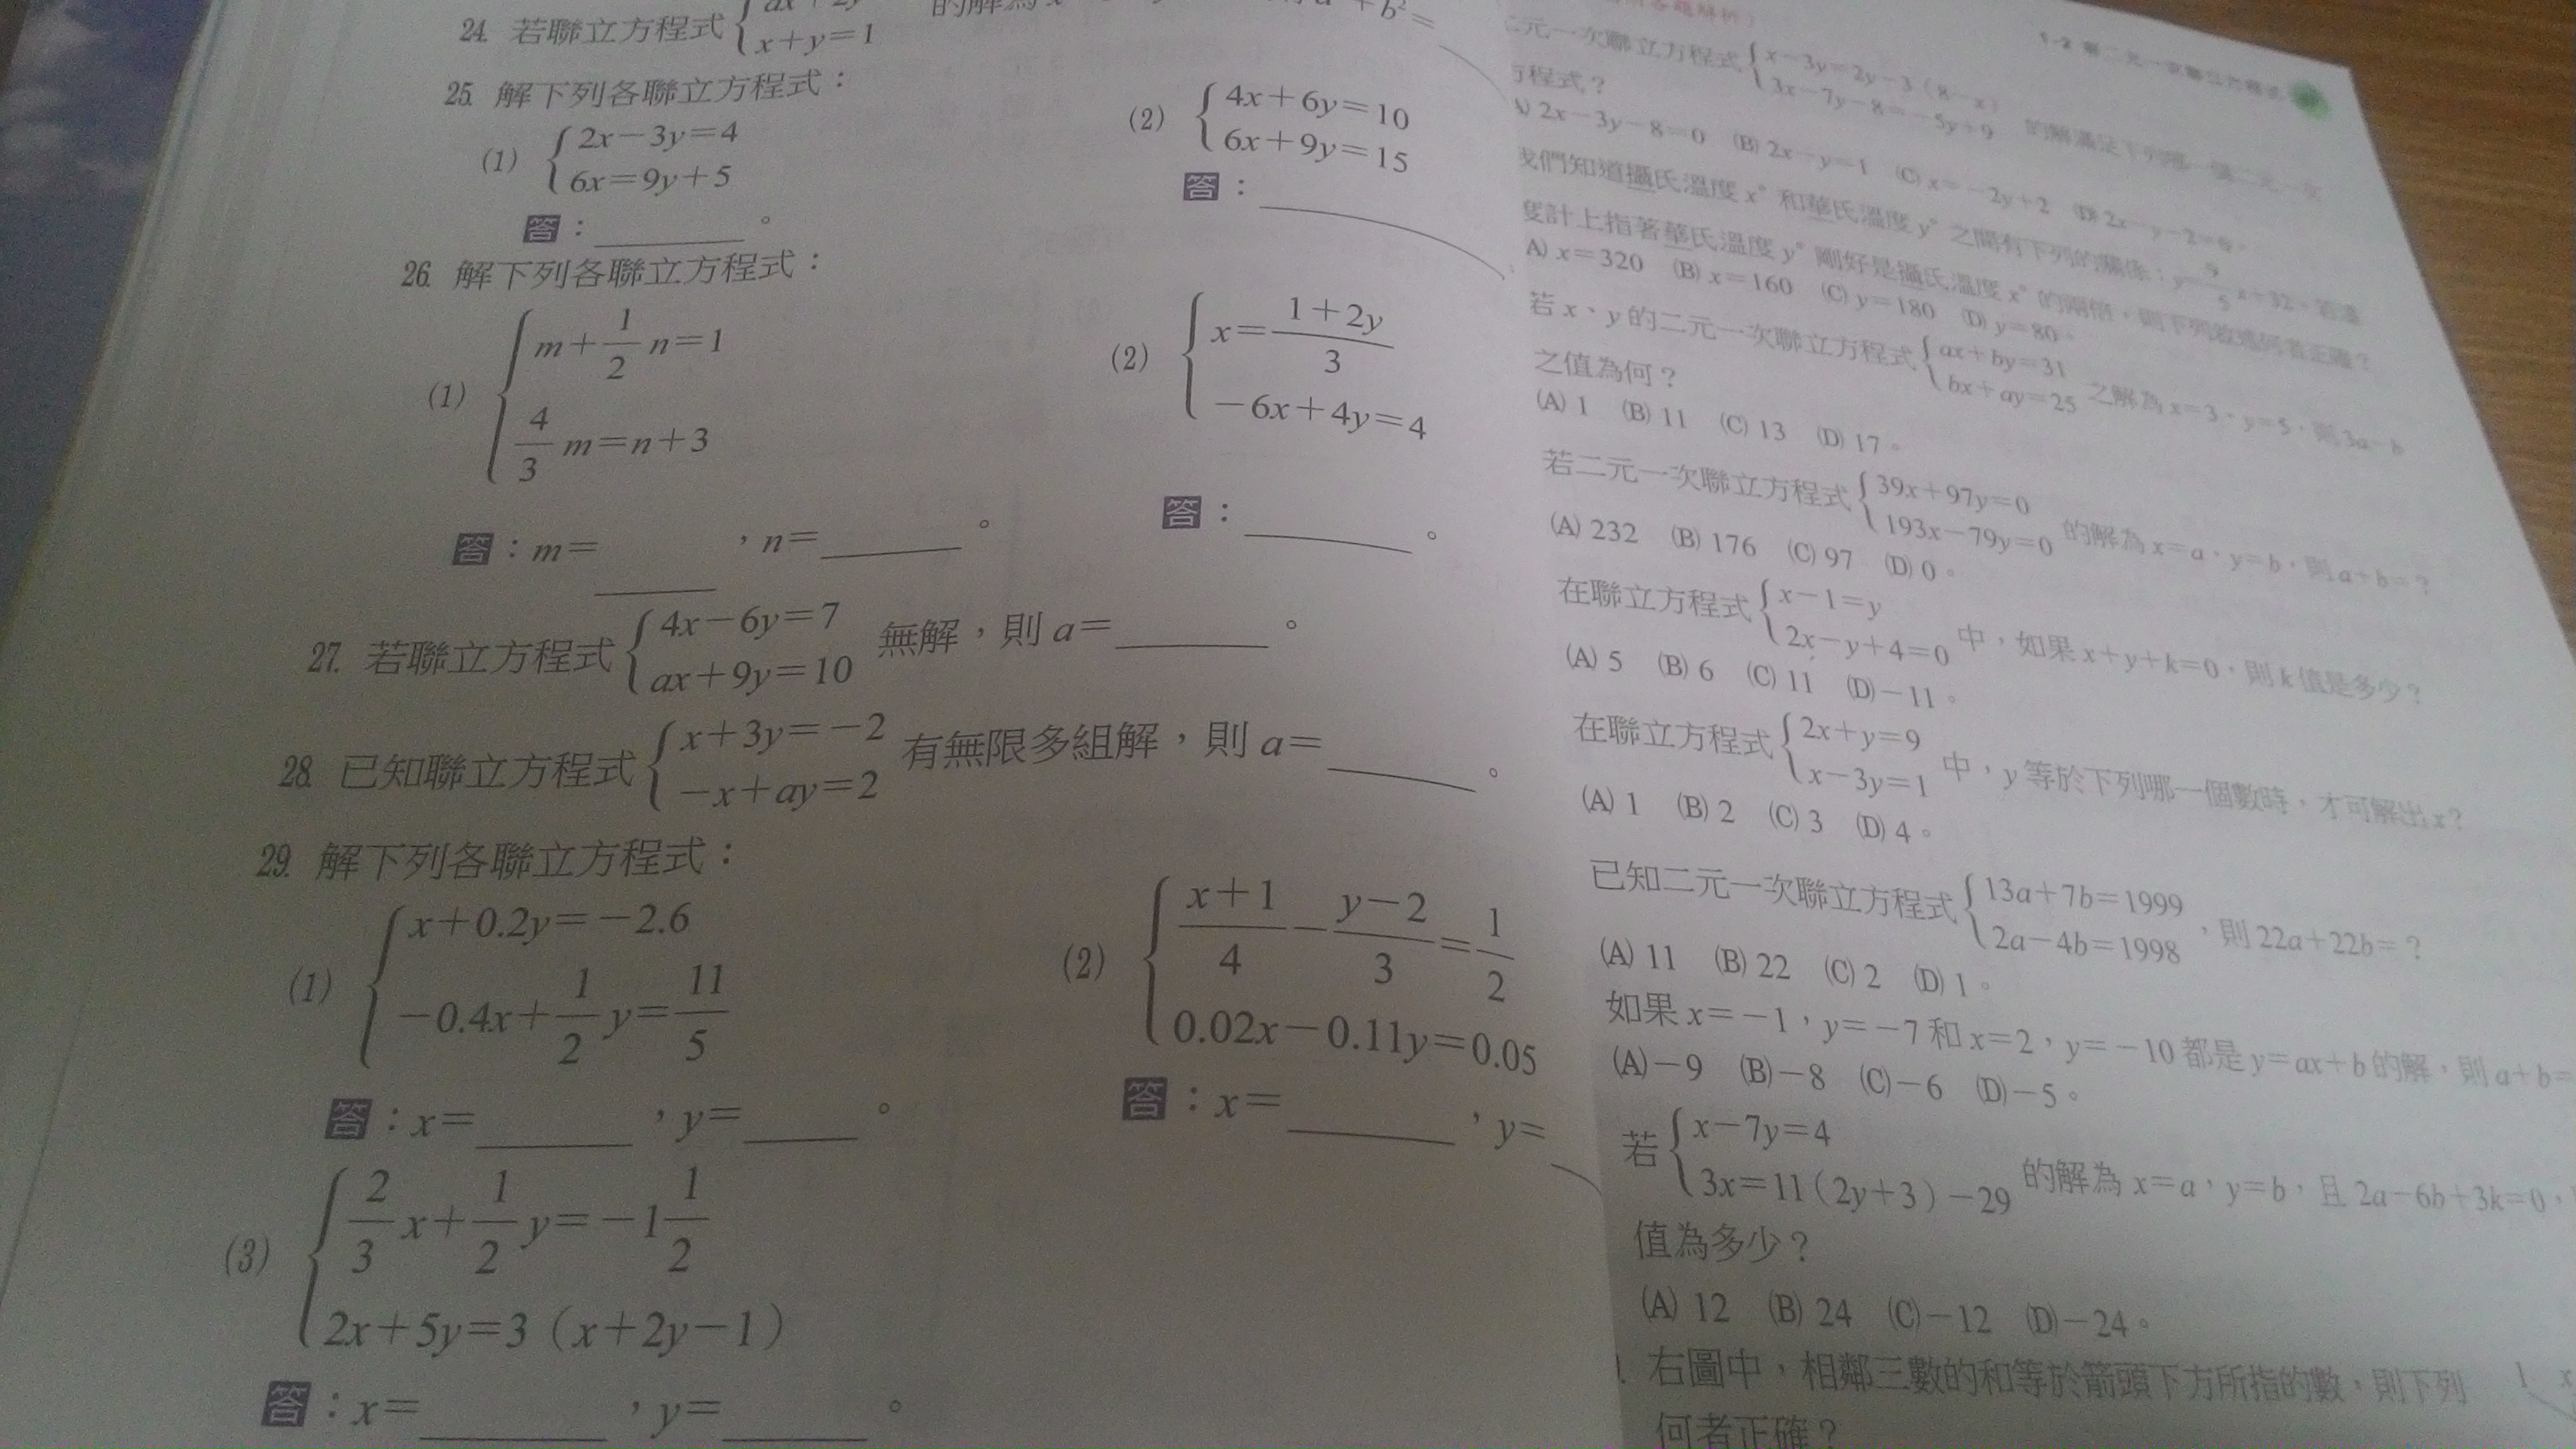 24. 若聯立方程式{x+y=1 的解為
b²=
25. 解下列各聯立方程式：
(1) {2x-3y=4
6x=9y+5
答：______。
(2) {4x+6y=10
6x+9y=15
答：______
26. 解下列各聯立方程式：
(1) {m+1/2 n=1
4/3 m=n+3
答：m=______，n=______。
(2) {x=(1+2y)/3
-6x+4y=4
答：______。
27. 若聯立方程式{4x-6y=7
ax+9y=10 無解，則a=______。
28. 已知聯立方程式{x+3y=-2
-x+ay=2 有無限多組解，則a=______。
29. 解下列各聯立方程式：
(1) {x+0.2y=-2.6
-0.4x+1/2 y=11/5
答：x=______，y=______。
(2) {(x+1)/4-(y-2)/3=1/2
0.02x-0.11y=0.05
答：x=______，y=
(3) {2/3 x+1/2 y=-1 1/2
2x+5y=3（x+2y-1）
答：x=______，y=______。
二元一次聯立方程式{x-3y=2y-3（8-x）
3x-7y-8=-5y+9 的解滿足下列哪一個二元一次
方程式？
(A) 2x-3y-8=0 (B) 2x-y=1 (C) x=-2y+2 (D) 2x-y-2=6。
我們知道攝氏溫度x°和華氏溫度y°之間有下列的關係：y=9/5 x+32，若溫
度計上指著華氏溫度y°剛好是攝氏溫度x°的兩倍，則下列敘述何者正確？
(A) x=320 (B) x=160 (C) y=180 (D) y=80。
若x、y的二元一次聯立方程式{ax+by=31
bx+ay=25 之解為x=3，y=5，則3a-b
之值為何？
(A) 1 (B) 11 (C) 13 (D) 17。
若二元一次聯立方程式{39x+97y=0
193x-79y=0 的解為x=a、y=b，則a+b=？
(A) 232 (B) 176 (C) 97 (D) 0。
在聯立方程式{x-1=y
2x-y+4=0 中，如果x+y+k=0，則k值是多少？
(A) 5 (B) 6 (C) 11 (D)-11。
在聯立方程式{2x+y=9
x-3y=1 中，y等於下列哪一個數時，才可解出x？
(A) 1 (B) 2 (C) 3 (D) 4。
已知二元一次聯立方程式{13a+7b=1999
2a-4b=1998 ，則22a+22b=？
(A) 11 (B) 22 (C) 2 (D) 1。
如果x=-1，y=-7和x=2，y=-10都是y=ax+b的解，則a+b=
(A)-9 (B)-8 (C)-6 (D)-5。
若{x-7y=4
3x=11（2y+3）-29 的解為x=a，y=b，且2a-6b+3k=0，
值為多少？
(A) 12 (B) 24 (C)-12 (D)-24。
右圖中，相鄰三數的和等於箭頭下方所指的數，則下列
何者正確？
1 x